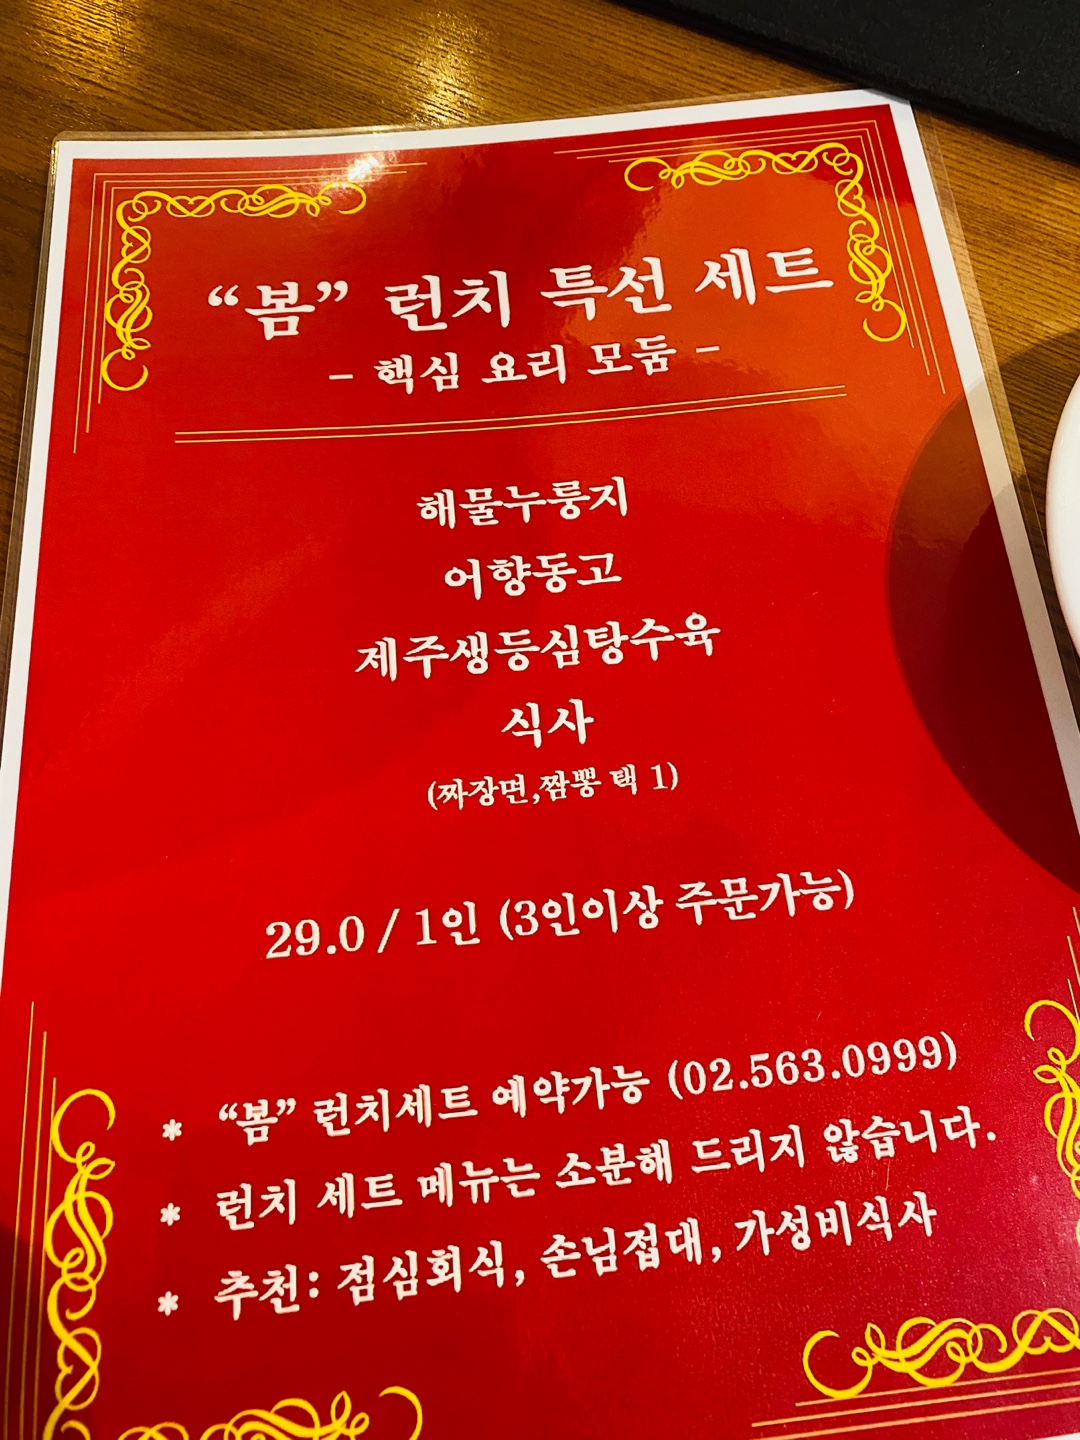 “봄” 런치 특선 세트
- 핵심 요리 모둠 -
해물누룽지
어향동고
제주생등심탕수육
식사
(짜장면,짬뽕 택 1)
29.0 / 1인 (3인이상 주문가능)
* “봄” 런치세트 예약가능 (02.563.0999)
* 런치 세트 메뉴는 소분해 드리지 않습니다.
* 추천: 점심회식, 손님접대, 가성비식사